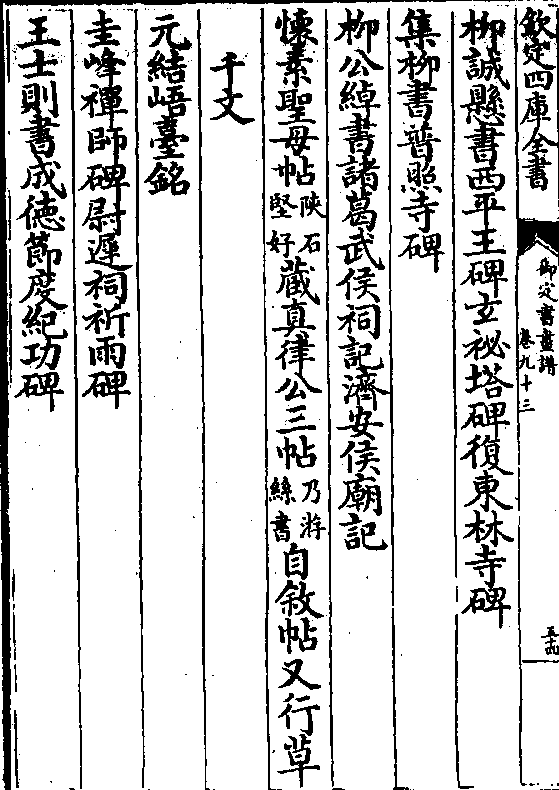 欽定四庫全書
御定書畫譜
卷九十三
五十四
柳誠懸書西平王碑玄祕塔碑復東林寺碑
集柳書普照寺碑
柳公綽書諸葛武侯祠記濟安侯廟記
懷素聖母帖陝石堅好藏真律公三帖乃游絲書自敘帖又行草
千文
元結峿臺銘
圭峰禪師碑尉遲祠祈雨碑
王士則書成德節度紀功碑